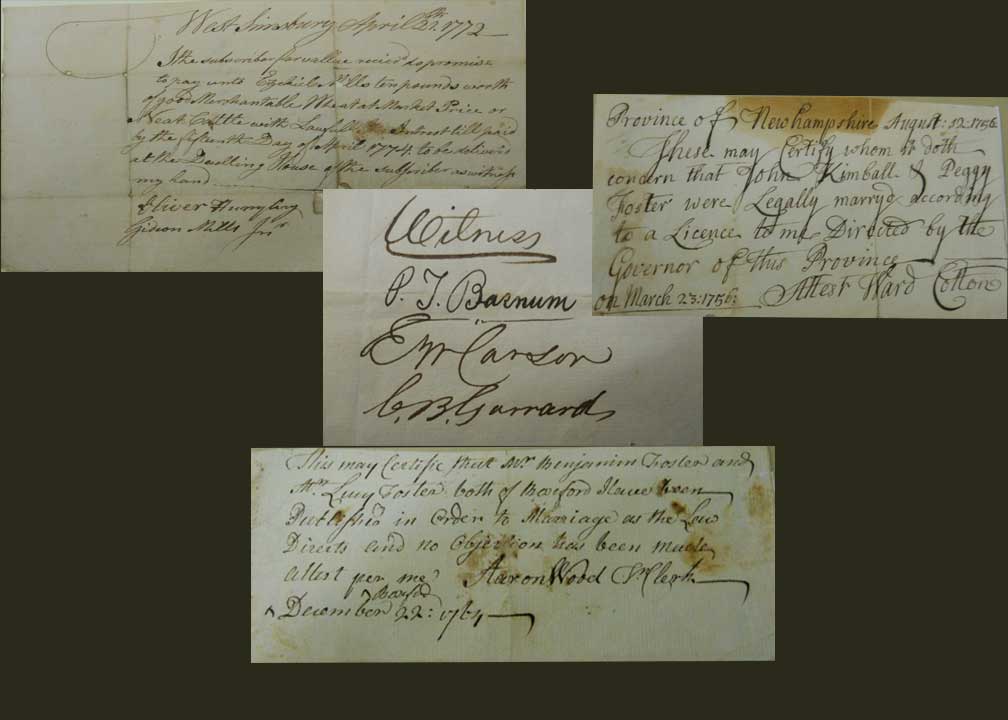 West Simsbury April 21st. 1772
I the subscriber for value reciev'd do promise
to pay unto Ezekiel Mills ten pounds worth
of good Merchantable Wheat at Market Price or
Neat Cattle with Lawfull Interest till paid
by the fifteenth Day of April 1774, to be deliver'd
at the Dwelling House of the Subscriber as witness
my hand
Oliver Humphry
Gideon Mills Jnr
Province of Newhampshire August: 12: 1756
These may Certify whom it doth
concern that John Kimball & Peggy
Foster were Legally marryd according
to a Licence to me Directed by the
Governor of this Province
on March 23: 1756: Attest Ward Cotton
Witness
P. T. Barnum
E W Carson
C. B. Garrard
This may Certifie that Mr Benjamin Foster and
Mrs Lucy Foster both of Boxford Have been
Publishd in Order to Marriage as the Law
Directs and no Objection has been made
attest per me Aaron Wood Tn Clerk
Boxford
December 22: 1764